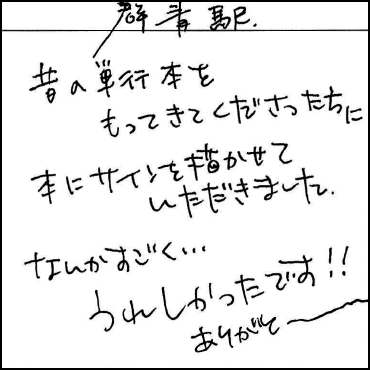 群青
昔の単行本を
もってきてくださったちに
本にサインを描かせて
いただきました.
なんかすごく…
うれしかったです!!
ありがと〜